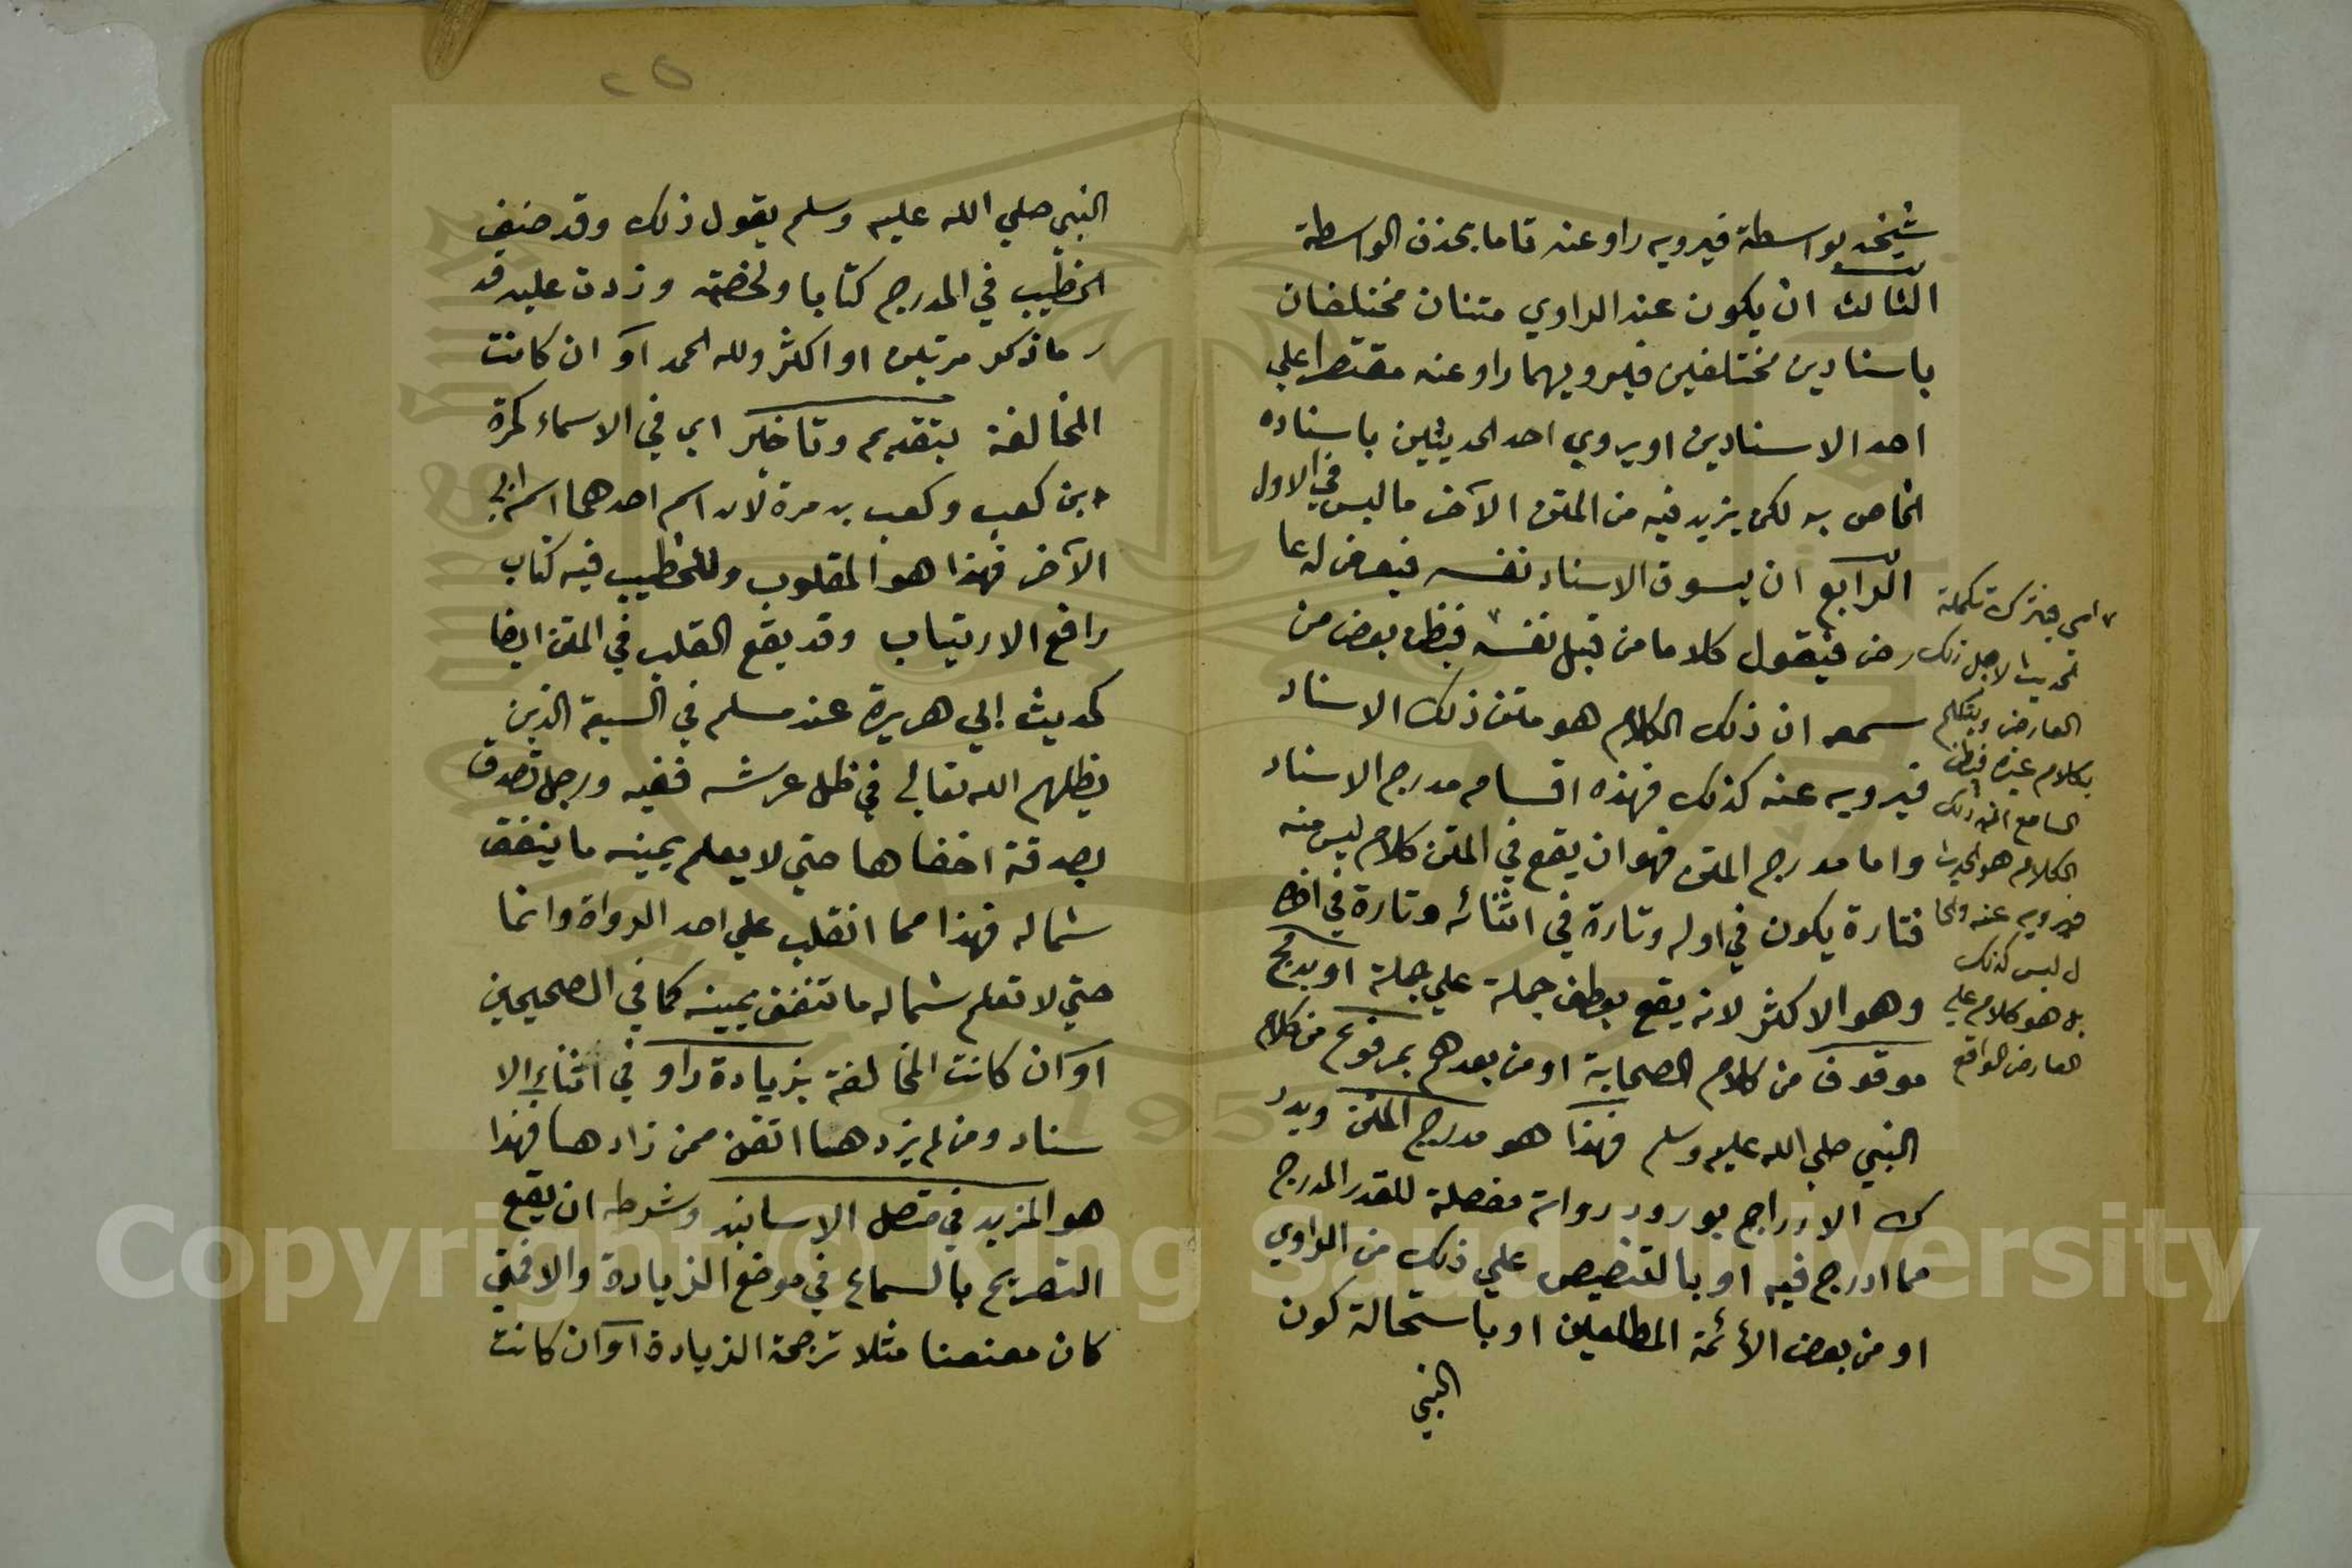 شيخه بواسطة فيرويه راو عنه تاما بحذف الواسطة
الثالث ان يكون عند الراوي متنان مختلفان
باسنادين مختلفين فيرويهما راو عنه مقتصرا علي
احد الاسنادين او يروي احد الحديثين باسناده
الخاص به لكن يزيد فيه من المتن الآخر ما ليس في الاول
الرابع ان يسوق الاسناد نفسه فيعرض له عا
رض فيقول كلاما من قبل نفسه فيظن بعض من
سمعه ان ذلك الكلام هو متن ذلك الاسناد
فيرويه عنه كذلك فهذه اقسام مدرج الاسناد
واما مدرج المتن فهو ان يقع في المتن كلام ليس منه
فتارة يكون في اوله وتارة في اثنائه وتارة في آخره
وهو الاكثر لانه يقع بعطف جملة علي جملة او بدمج
موقوف من كلام الصحابة او من بعدهم بمرفوع من كلام
النبي صلي الله عليه وسلم فهذا هو مدرج المتن ويدر
ك الادراج بورود رواية مفصلة للقدر المدرج
مما ادرج فيه او بالتنصيص علي ذلك من الراوي
او من بعض الأئمة المطلعين او باستحالة كون
النبي
اي فيترك تكملة
الحديث لاجل ذلك
العارض ويتكلم
بكلام غيره فيظن
السامع ان ذلك
الكلام هو الحديث
فيرويه عنه والحا
ل ليس كذلك
بل هو كلام علي
العارض الواقع
٢٥
النبي صلي الله عليه وسلم يقول ذلك وقد صنف
الخطيب في المدرج كتابا ولخصته وزدت عليه قد
ر ما ذكر مرتين او اكثر ولله الحمد او ان كانت
المخالفة بتقديم وتاخير اي في الاسماء كمرة
ابن كعب وكعب بن مرة لان اسم احدهما اسم ابي
الآخر فهذا هو المقلوب وللخطيب فيه كتاب
رافع الارتياب وقد يقع القلب في المتن ايضا
كحديث ابي هريرة عند مسلم في السبعة الذين
يظلهم الله تعالي في ظل عرشه ففيه ورجل تصدق
بصدقة اخفاها حتي لا يعلم يمينه ما ينفق
شماله فهذا مما انقلب علي احد الرواة وانما
حتي لا تعلم شماله ما تنفق يمينه كما في الصحيحين
او ان كانت المخالفة بزيادة راو في اثناء الا
سناد ومن لم يزدها اتقن ممن زادها فهذا
هو المزيد في متصل الاسانيد وشرطه ان يقع
التصريح بالسماع في موضع الزيادة والا فمتي
كان معنعنا مثلا ترجحة الزيادة او ان كانت
Copyright © King Saud University